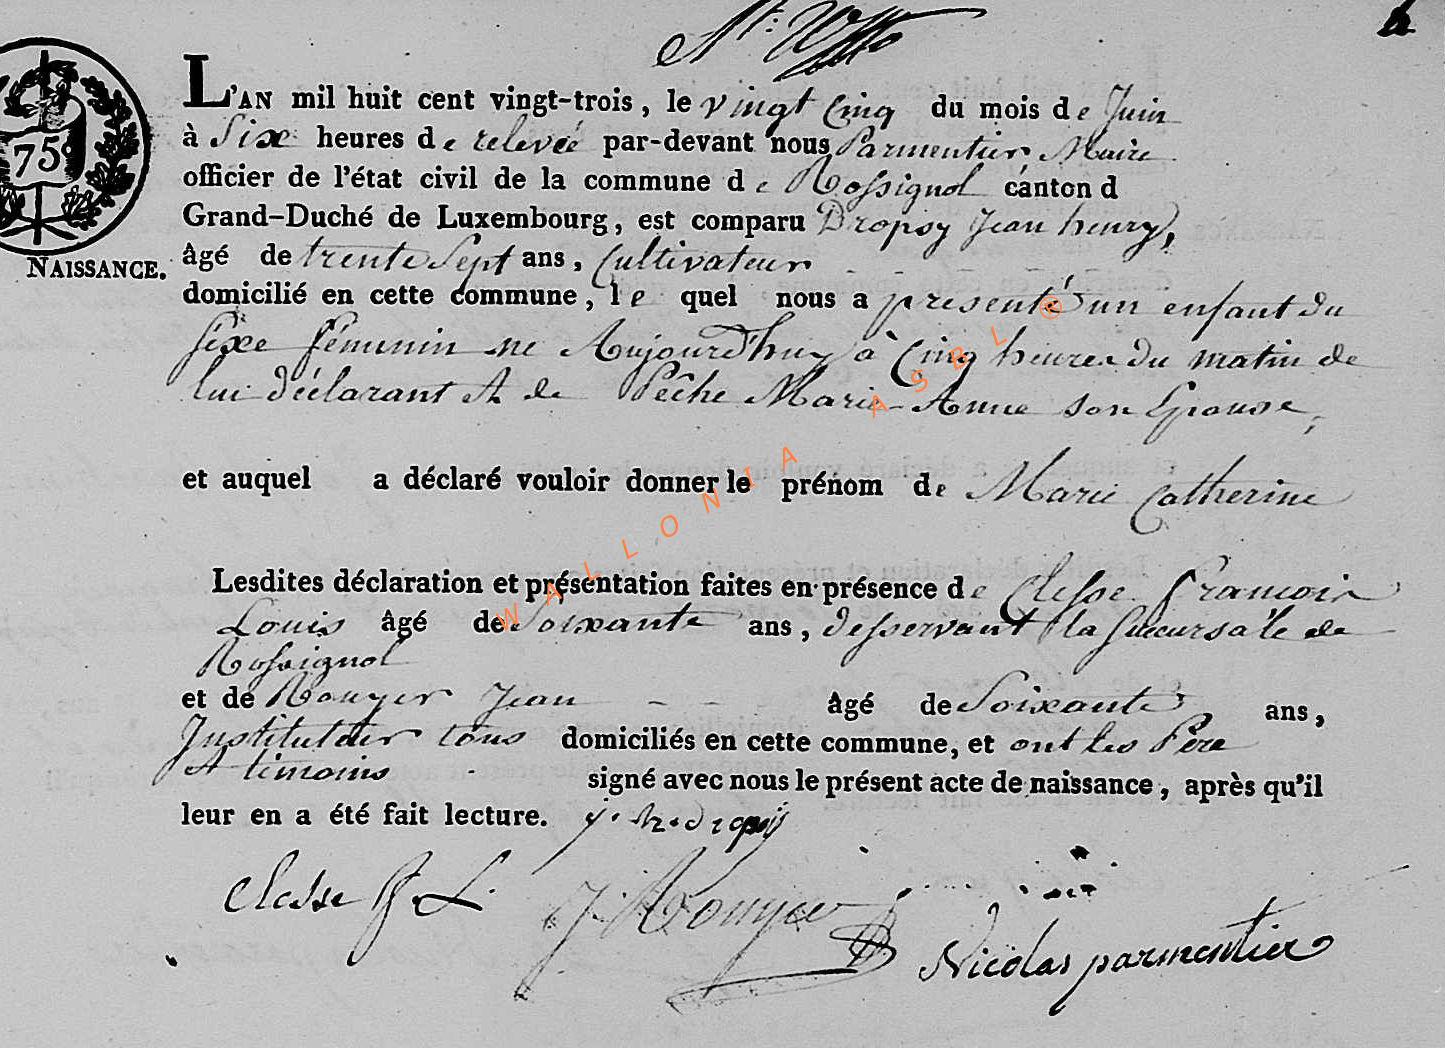 L'AN mil huit cent vingt-trois, le vingt Cinq du mois de Juin
à Six heures de relevée par-devant nous Parmentier Maire
75
officier de l'état civil de la commune de Rossignol canton d
Grand-Duché de Luxembourg, est comparu Dropsy Jean henry,
NAISSANCE.
âgé de trente Sept ans, Cultivateur
domicilié en cette commune, le quel nous a presenté un enfant du
sexe féminin né Aujourd'huy à Cinq heures du matin de
lui déclarant et de Pêche Marie-Anne son Epouse,
et auquel a déclaré vouloir donner le prénom de Marie Catherine
Lesdites déclaration et présentation faites en présence de Clesse francois
Louis âgé de Soixante ans, desservant la Succursale de
Rossignol
et de Rouyer Jean - - âgé de Soixante ans,
Instituteur tous domiciliés en cette commune, et ont les Pere
et temoins signé avec nous le présent acte de naissance, après qu'il
leur en a été fait lecture. j. h. dropsy
Clesse f. L. J. Rouyer
Nicolas parmentier
WALLONIA ASBL ®